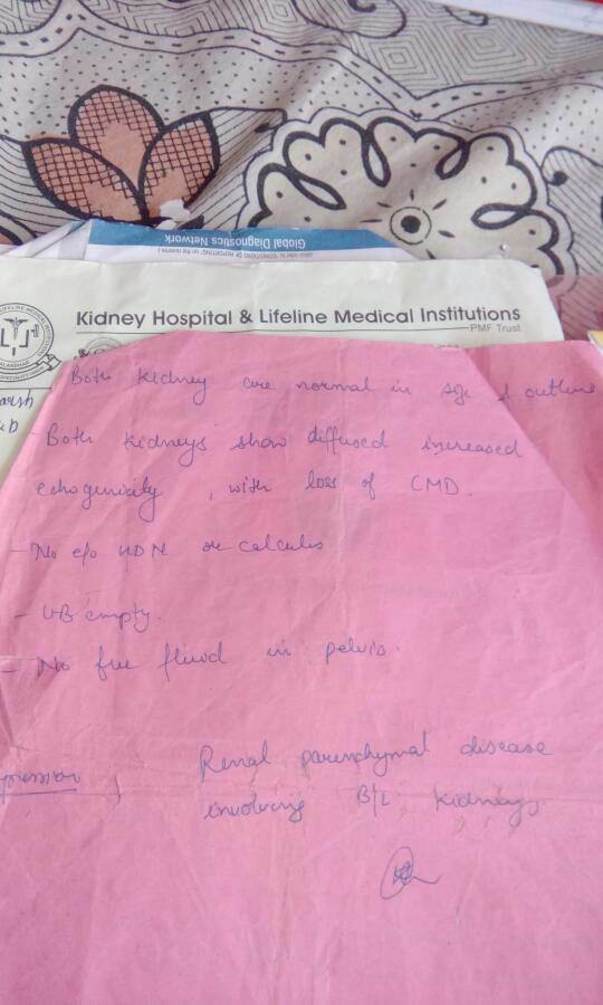 Global Diagnostics Network
Kidney Hospital & Lifeline Medical Institutions
PMF Trust
Both kidney are normal in size & outline
- Both kidneys show diffused increased
echogenicity, with loss of CMD.
- No e/o HDN or calculus
- UB empty.
- No free fluid in pelvis.
pression
Renal parenchymal disease
involving B/L kidneys